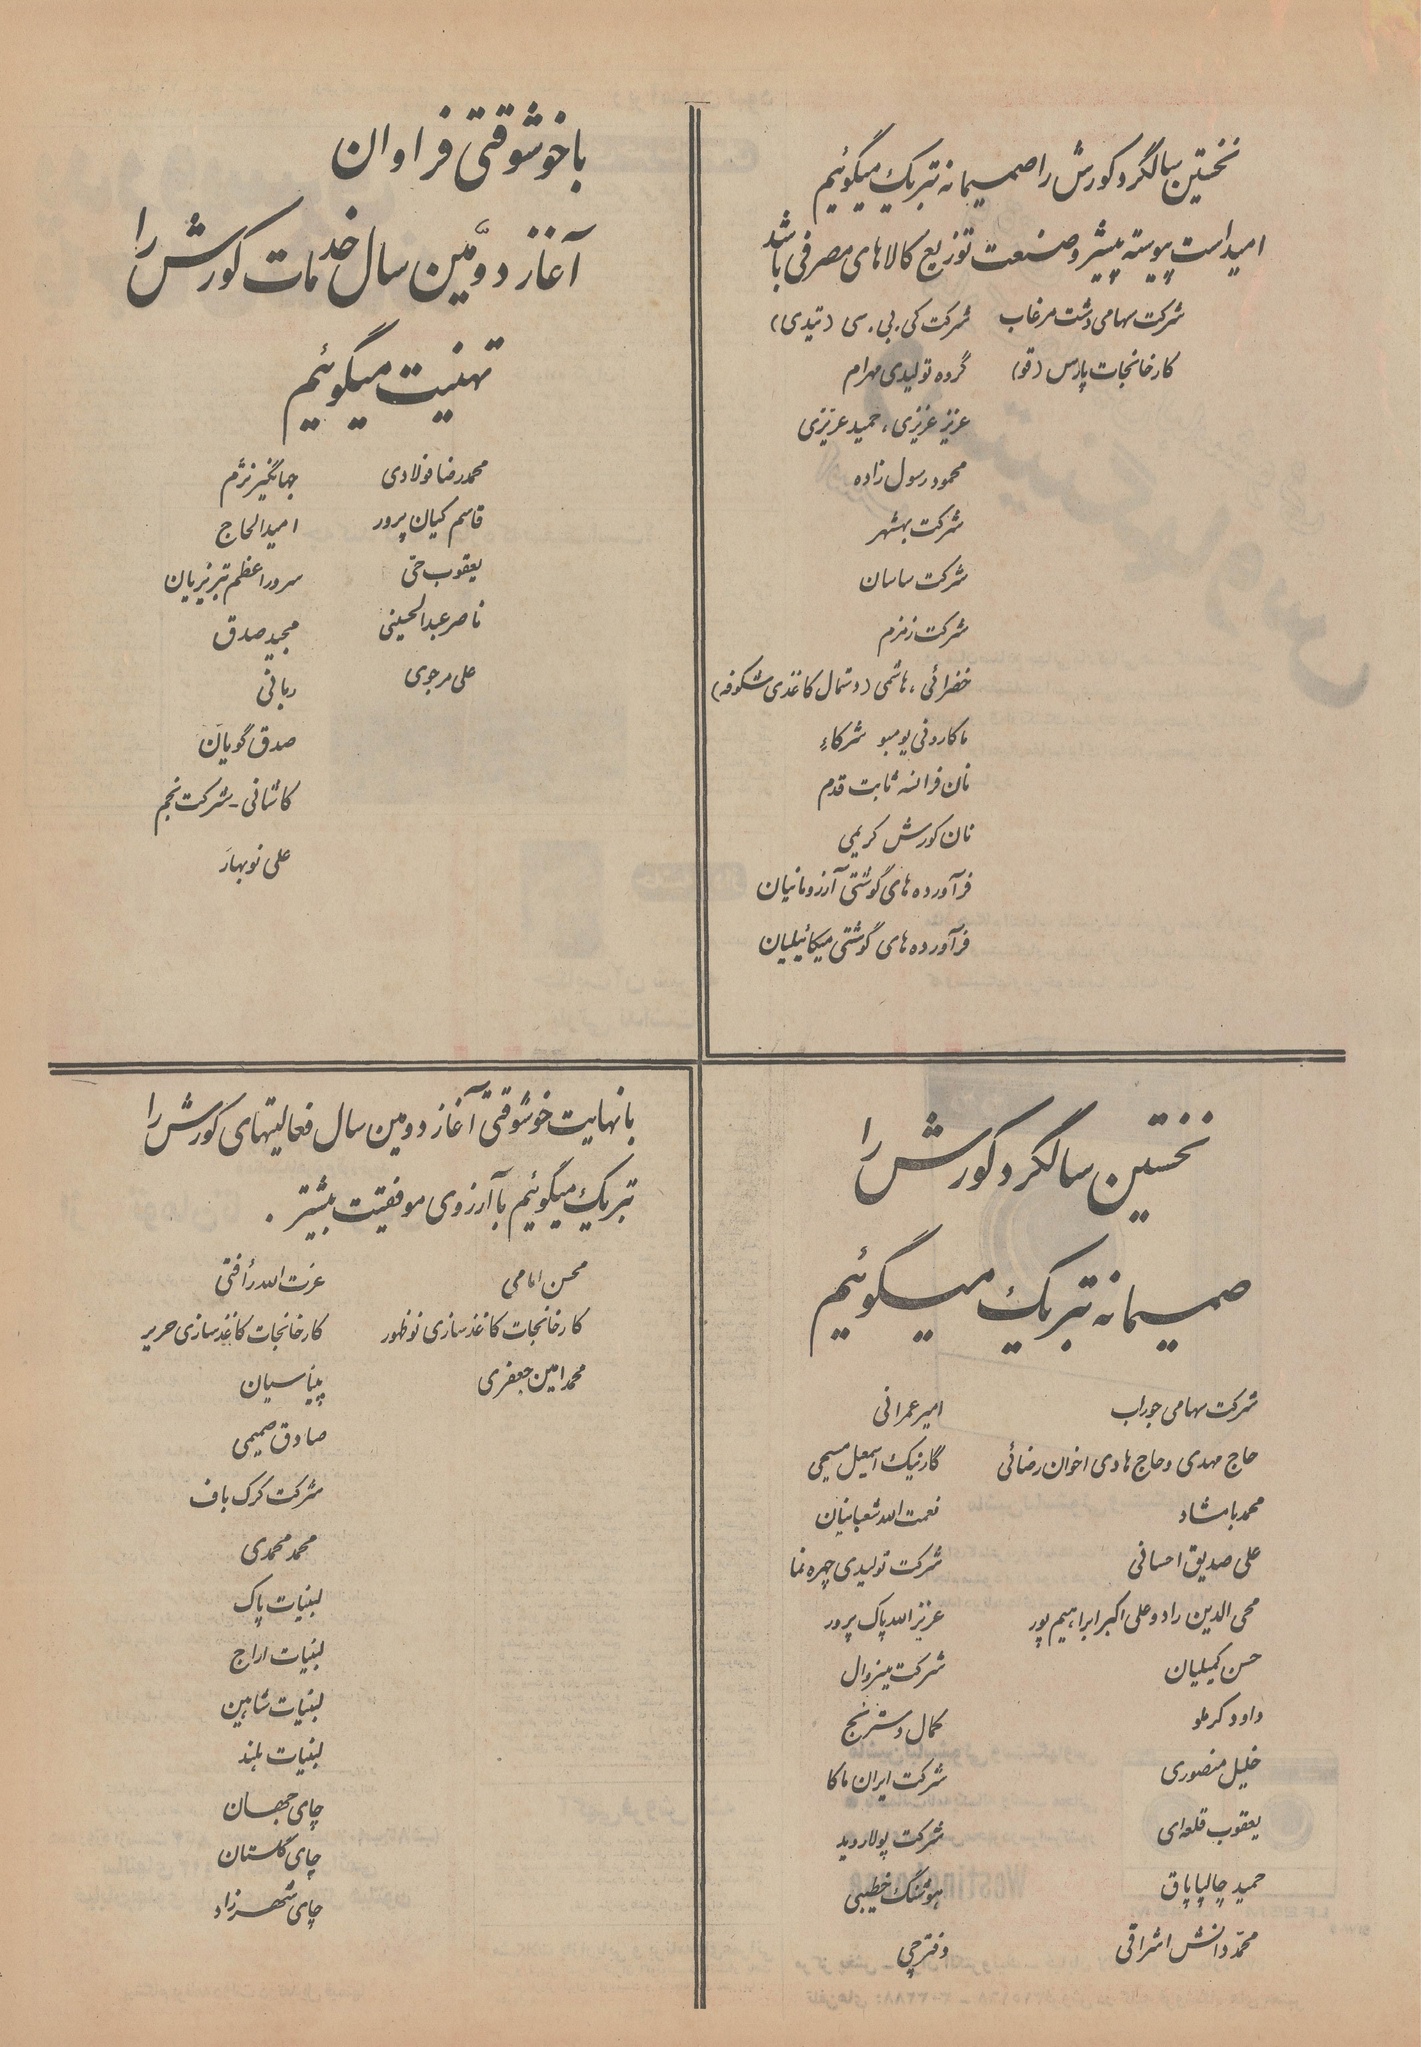 نخستین سالگرد کورش را صمیمانه تبریک میگوئیم
امید است پیوسته پیشرو صنعت توزیع کالاهای مصرفی باشد
شرکت سهامی دشت مرغاب
کارخانجات پارس (قو)
شرکت کی.بی.سی (تیدی)
گروه تولیدی مهرام
عزیز عزیزی، حمید عزیزی
محمود رسول زاده
شرکت بهشهر
شرکت ساسان
شرکت زمزم
خضرائی، هاشمی (دستمال کاغذی شکوفه)
ماکارونی یومبو شرکاء
نان فرانسه ثابت قدم
نان کورش کریمی
فرآورده های گوشتی آرزومانیان
فرآورده های گوشتی میکائیلیان
با خوشوقتی فراوان
آغاز دوّمین سال خدمات کورش را
تهنیت میگوئیم
محمدرضا فولادی
قاسم کیان پرور
یعقوب حقی
ناصر عبدالحسینی
علی مرجوی
جهانگیر نژم
امید الحاج
سرور اعظم تبریزیان
مجید صدق
ربانی
صدق گویان
کاشانی - شرکت نجم
علی نوبهار
نخستین سالگرد کورش را
صمیمانه تبریک میگوئیم
شرکت سهامی جوراب
حاج مهدی و حاج هادی اخوان رضائی
محمد بامشاد
علی صدیق احسانی
محی الدین راد و علی اکبر ابراهیم پور
حسن کمیلیان
داود کرملو
خلیل منصوری
یعقوب قلعه‌ای
حمید چالپاپاق
محمّد دانش اشراقی
امیر عمرانی
گارنیک اسمعیل مسیحی
نعمت الله شعبانیان
شرکت تولیدی چهره نما
عزیزالله پاک پرور
شرکت مینروال
کمال دسترنج
شرکت ایران ماکا
شرکت پولاروید
هوشنگ خطیبی
دفترچی
با نهایت خوشوقتی آغاز دومین سال فعالیتهای کورش را
تبریک میگوئیم با آرزوی موفقیت بیشتر .
محسن امامی
کارخانجات کاغذسازی نوظهور
محمد امین جعفری
عزت الله رأفتی
کارخانجات کاغذسازی حریر
پیناسیان
صادق صمیمی
شرکت کرک باف
محمد محمدی
لبنیات پاک
لبنیات اراج
لبنیات شاهین
لبنیات بلند
چای جهان
چای گلستان
چای شهرزاد